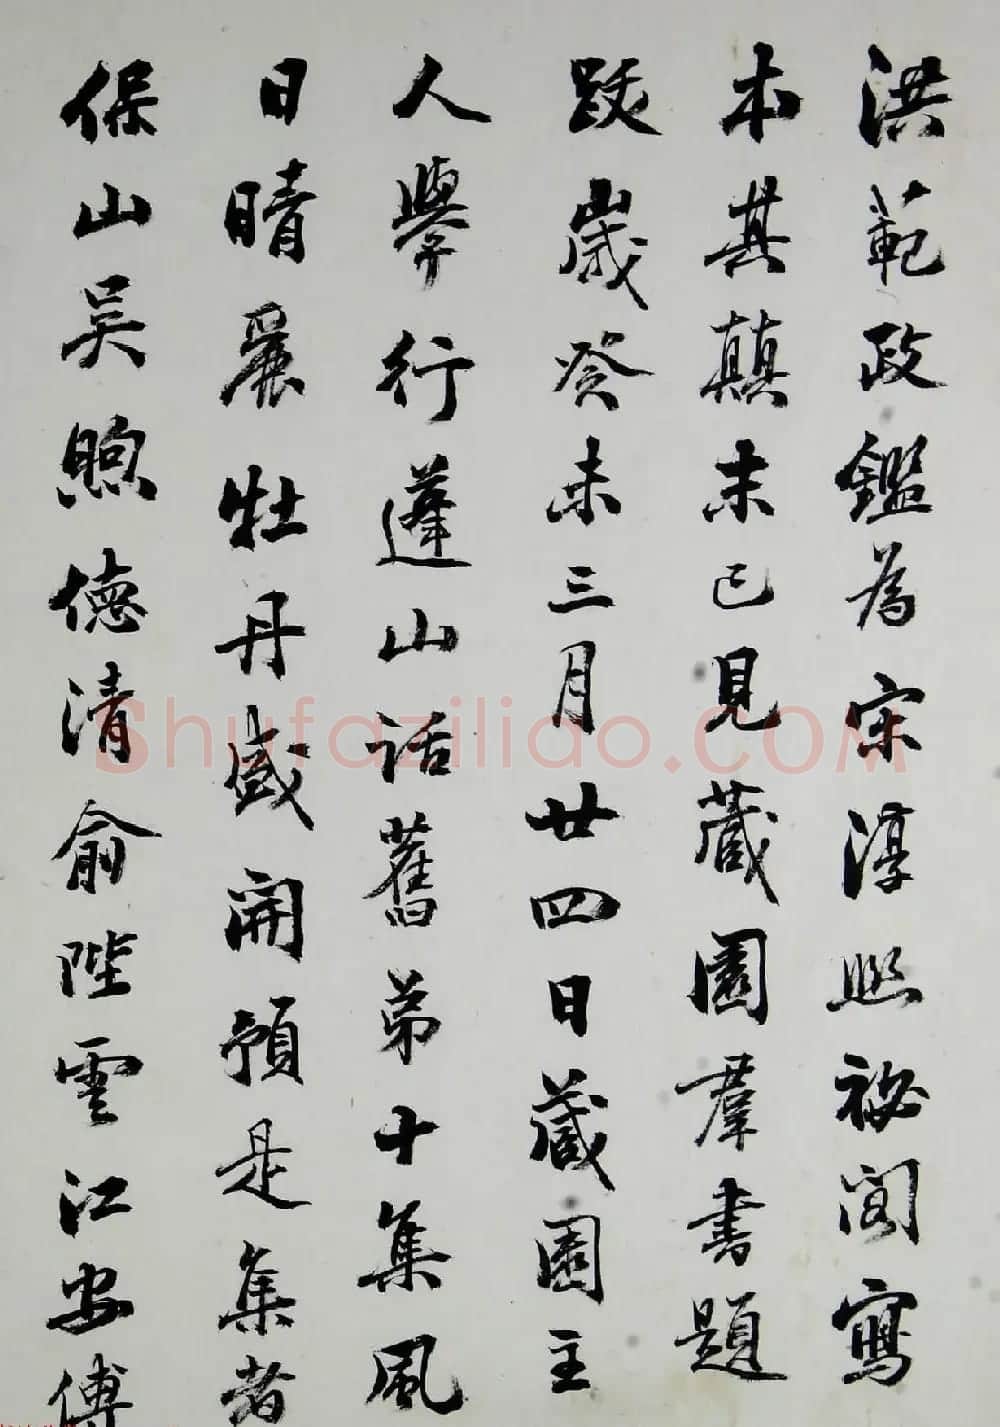 洪範政鑑為宋淳熙祕閣寫
本其顛末已見藏園羣書題
跋歲癸未三月廿四日藏園主
人舉行蓬山話舊弟十集風
日晴麗牡丹盛開預是集者
保山吴煦德清俞陛雲江安傅
Shufaziliao.COM